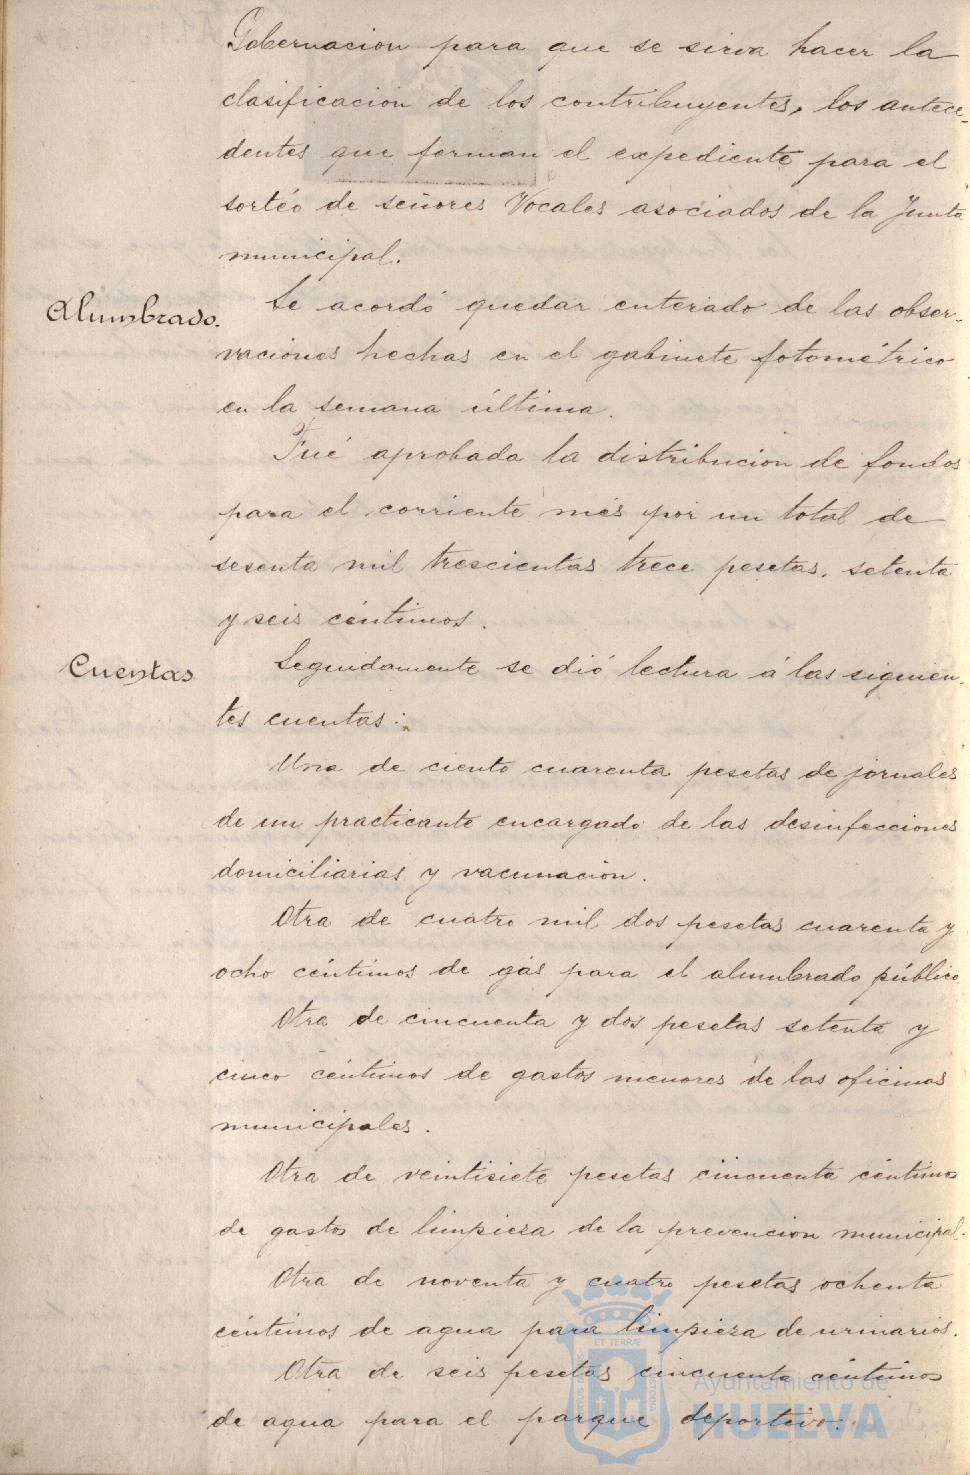 Gobernacion para que se sirva hacer la
clasificación de los contribuyentes, los antece-
dentes que forman el expediente para el
sortéo de señores Vocales asociados de la Junta
municipal.
Alumbrado.
Se acordó quedar enterado de las obser-
vaciones hechas en el gabinete fotométrico
en la semana última.
Fué aprobada la distribucion de fondos
para el corriente més por un total de
sesenta mil trescientas trece pesetas, setenta
y seis céntimos.
Cuentas
Seguidamente se dió lectura á las siguien-
tes cuentas:
Una de ciento cuarenta pesetas de jornales
de un practicante encargado de las desinfecciones
domiciliarias y vacunación.
Otra de cuatro mil dos pesetas cuarenta y
ocho céntimos de gás para el alumbrado público
Otra de cincuenta y dos pesetas setenta y
cinco céntimos de gastos menores de las oficinas
municipales.
Otra de veintisiete pesetas cincuenta céntimos
de gastos de limpieza de la prevencion municipal.
Otra de noventa y cuatro pesetas ochenta
céntimos de agua para limpieza de urinarios.
Otra de seis pesetas cincuenta céntimos
de agua para el parque deportivo.
Ayuntamiento de
HUELVA
ET TERRÆ